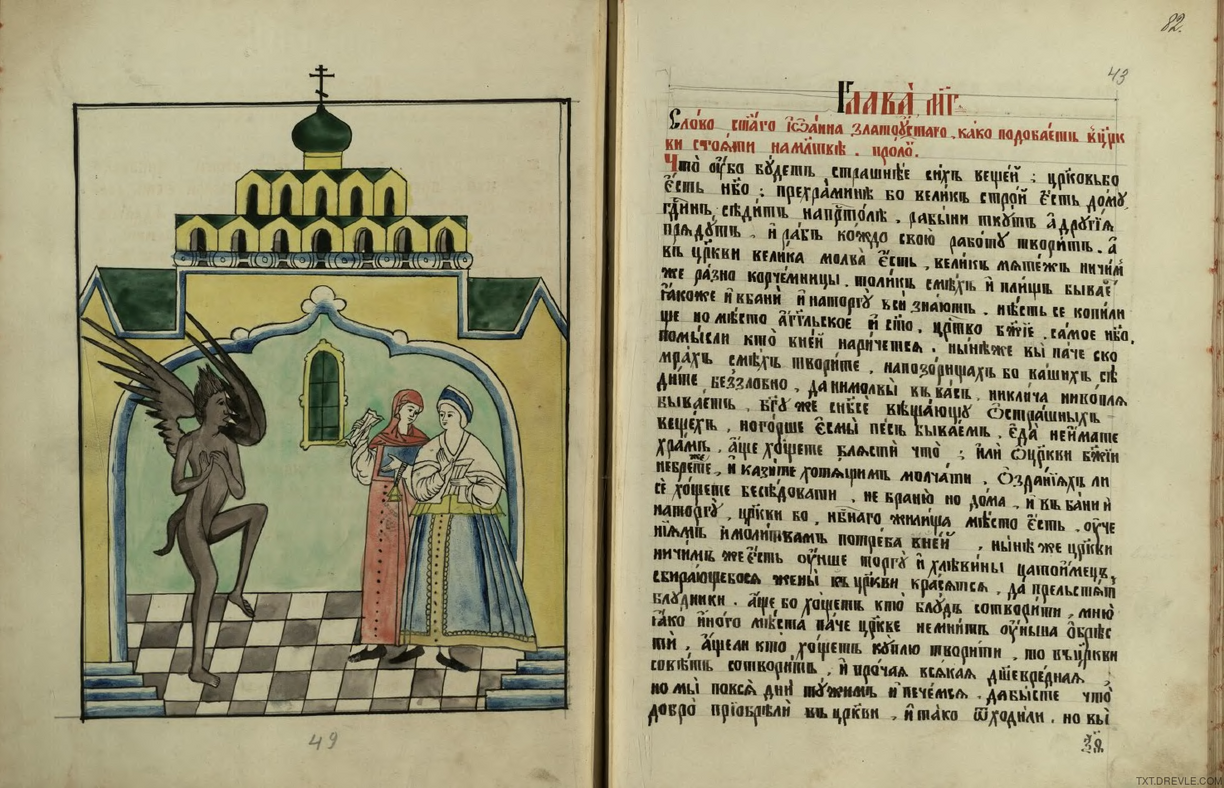 82.
43
Глава̀ мг҃.
Сло́во ст҃а́го іѡа́нна златоꙋ́стаго, ка́ко подоба́етъ в҆ цр҃к
ви стоѧ́ти на мл҃твѣ. проло́.
Что̀ ᲂу҆́бо бꙋ́детъ страшнѣ́е си́хъ веще́й ; цр҃ковь бо
є҆́сть нб҃о ; прехра́минѣ бо вели́къ стро́й є҆́сть до́мꙋ,
гд҃и́нъ сѣди́тъ на прⷭ҇то́лѣ, рабы́ни ткꙋ́тъ а҆ дрꙋгі́ѧ
прѧдꙋ́тъ, и҆ ра́бъ ко́ждо свою̀ рабо́тꙋ твори́тъ. а҆
въ цр҃кви вели́ка молва̀ є҆́сть, вели́къ мѧте́жъ ничи́м
же ра́зно корче́мницы. толи́къ смѣ́хъ и҆ пли́щъ быва́е
ꙗ҆́коже и҆ в ба́ни и҆ на торгꙋ̀ всѝ зна́ютъ. нѣ́сть се копи́ли
ще но мѣ́сто а҆́гг҃льское и҆ ст҃о, цр҃тво бж҃їе, са́мое нб҃о,
помы́сли кто̀ в не́й нарице́тсѧ, ны́нѣже вы̀ па́че ско
мра́хъ смѣ́хъ твори́те, на позо́рищахъ бо ва́шихъ сѣ
ди́те беззло́бно, да ни молвы̀ въ ва́съ, ни кли́ча нико́лѧ
быва́етъ, бг҃ꙋ же си́бсе вѣща́ющꙋ ѡ҆ стра́шныхъ
веще́хъ, но го́рше є҆смы̀ пе́съ быва́емъ, є҆да̀ не и҆́мате
хра́мъ, а҆́ще хо́щете блѧ́сти что̀ ; и҆лѝ ѿ цр҃кви бж҃їи
небре́те, и҆ кази́те хотѧ́щимъ молча́ти, ѡ҆ зда́нїѧхъ ли
сѐ хо́щете бесѣ́довати, не браню̀ но до́ма, и҆ въ ба́ни и҆
на торгꙋ̀, цр҃кви бо, нб҃наго жили́ща мѣ́сто є҆́сть, ᲂу҆че
нїѧ́мъ и҆ моли́твамъ потре́ба в не́й, ны́нѣ же цр҃кви
ничи́мъ же є҆́сть ᲂу҆́нше торгꙋ̀ и҆ хлѣ́вины цатої́мецъ,
сбира́ющебосѧ жены̀ въ цр҃кви красѧ́тсѧ, да прельстѧ́тъ
блꙋ́дники. а҆́ще бо хо́щетъ кто̀ блꙋ́дъ сотвори́ти, мню̀
ꙗ҆́ко и҆но́го мѣ́ста па́че цр҃кве не мни́тъ ᲂу҆нына ѡ҆брѣ́с
ти, а҆́щели кто̀ хо́щетъ кꙋ́плю твори́ти, то въ цр҃кви
совѣ́тъ сотвори́тъ, и҆ про́чаѧ всѧ́каѧ дш҃евре́днаѧ
но мы̀ повсѧ̀ днѝ тꙋ́жимъ и҆ пече́мсѧ, да бы́сте что̀
добро̀ прїѡбрѣ́ли въ цр҃кви, и҆ та́ко ѿходи́ли, но вы̀
49
TXT.DREVLE.COM